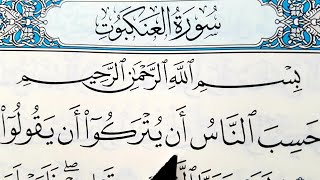 سُورَةُ الْعَنكَبُوتِ
بِسْمِ ٱللَّهِ ٱلرَّحْمَٰنِ ٱلرَّحِيمِ
حَسِبَ ٱلنَّاسُ أَن يُتْرَكُوٓا۟ أَن يَقُولُوٓا۟